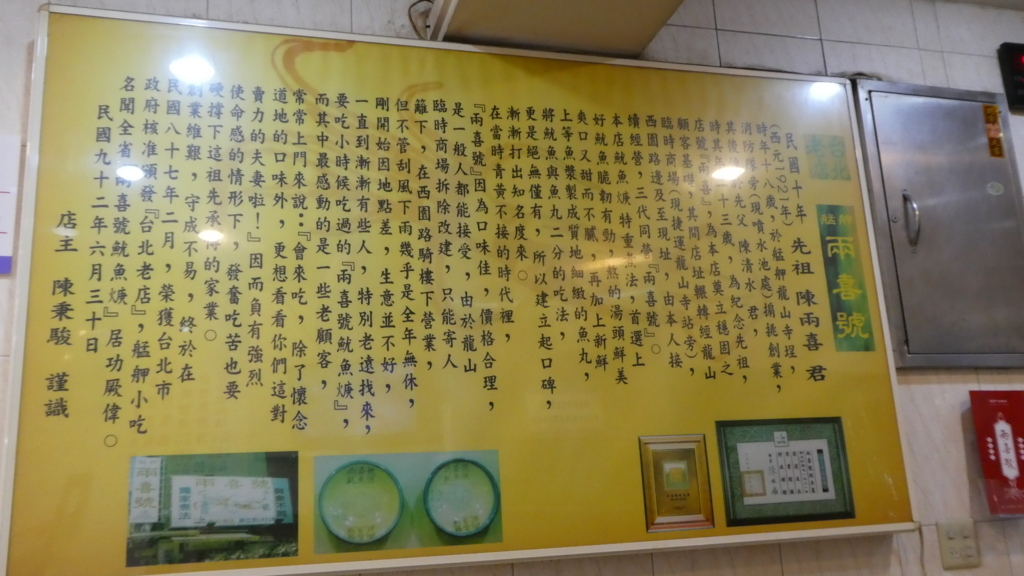 艋舺
兩喜號
民國十年 先祖 陳兩喜君
(西元1921年)於艋舺龍山寺埕,
時年十八歲,
消防隊旁(現噴水池處)肩挑創業,
其後於先父 陳清水君,
時其年二十三歲,為紀念先祖,
店號『兩喜』,為本店奠立穩固之
顧客基礎,其間店址輾轉經龍山
臨時商場(現捷運龍山寺站旁)
西園路邊及至現址,由本人接
續經營,三代同營『兩喜號』。
本店魷魚焿特重魚法,首選上
好魷魚脆韌有勁,熬的湯頭鮮美
爽口又甜而不膩,再加上新鮮
上等魚漿製成質地細緻的魚丸,
將魷魚與魚丸二分的吃法,
更是絕無僅有,所以建立起口碑,
漸漸打出知名度來。
在當時青黃不接的時代裡,
『兩喜號』因為口味佳,價格合理,
是一般人都能接受,由於龍山
臨時商場拆除改建,只能寄人
籬下,在西園路騎樓下營業,
但不管刮風下雨幾乎是全年無休,
剛開始因地點差,生意並不好,
一直到漸漸有些人,特別老遠找來,
要吃小時候吃過的『兩喜號魷魚焿』,
而其中最感動的是一些老顧客,
常常上門來說:『會來吃,除了懷念
道地的口味外,更想看看你們這對
賣力的夫妻啦!』因而負有強烈
使命感的情形下,發奮吃苦也要
硬撐下這祖先承傳的家業。
創業維艱,守成不易,終於在
民國八十七年二月,榮獲台北市
政府核准頒發『台北老店』,艋舺小吃
名聞全省『兩喜號魷魚焿』居功厥偉。
民國九十二年六月三十日
店主 陳秉駿 謹識
兩喜號
兩喜號